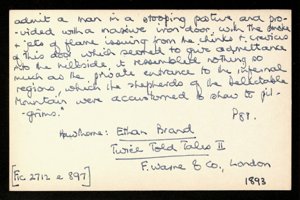 admit a man in a stooping posture, and pro-
vided with a massive iron door. With the smoke
& jets of flame issuing from the chinks & crevices
of this door which seemed to give admittance
into the hillside, it resembled nothing so
much as the private entrance to the infernal
regions, which the shepherds of the Delectable
Mountains were accustomed to show to pil-
grims."
P 81.
Hawthorne: Ethan Brand
Twice Told Tales II
F. Warne & Co., London
1893
[Fic 2712 e 897]